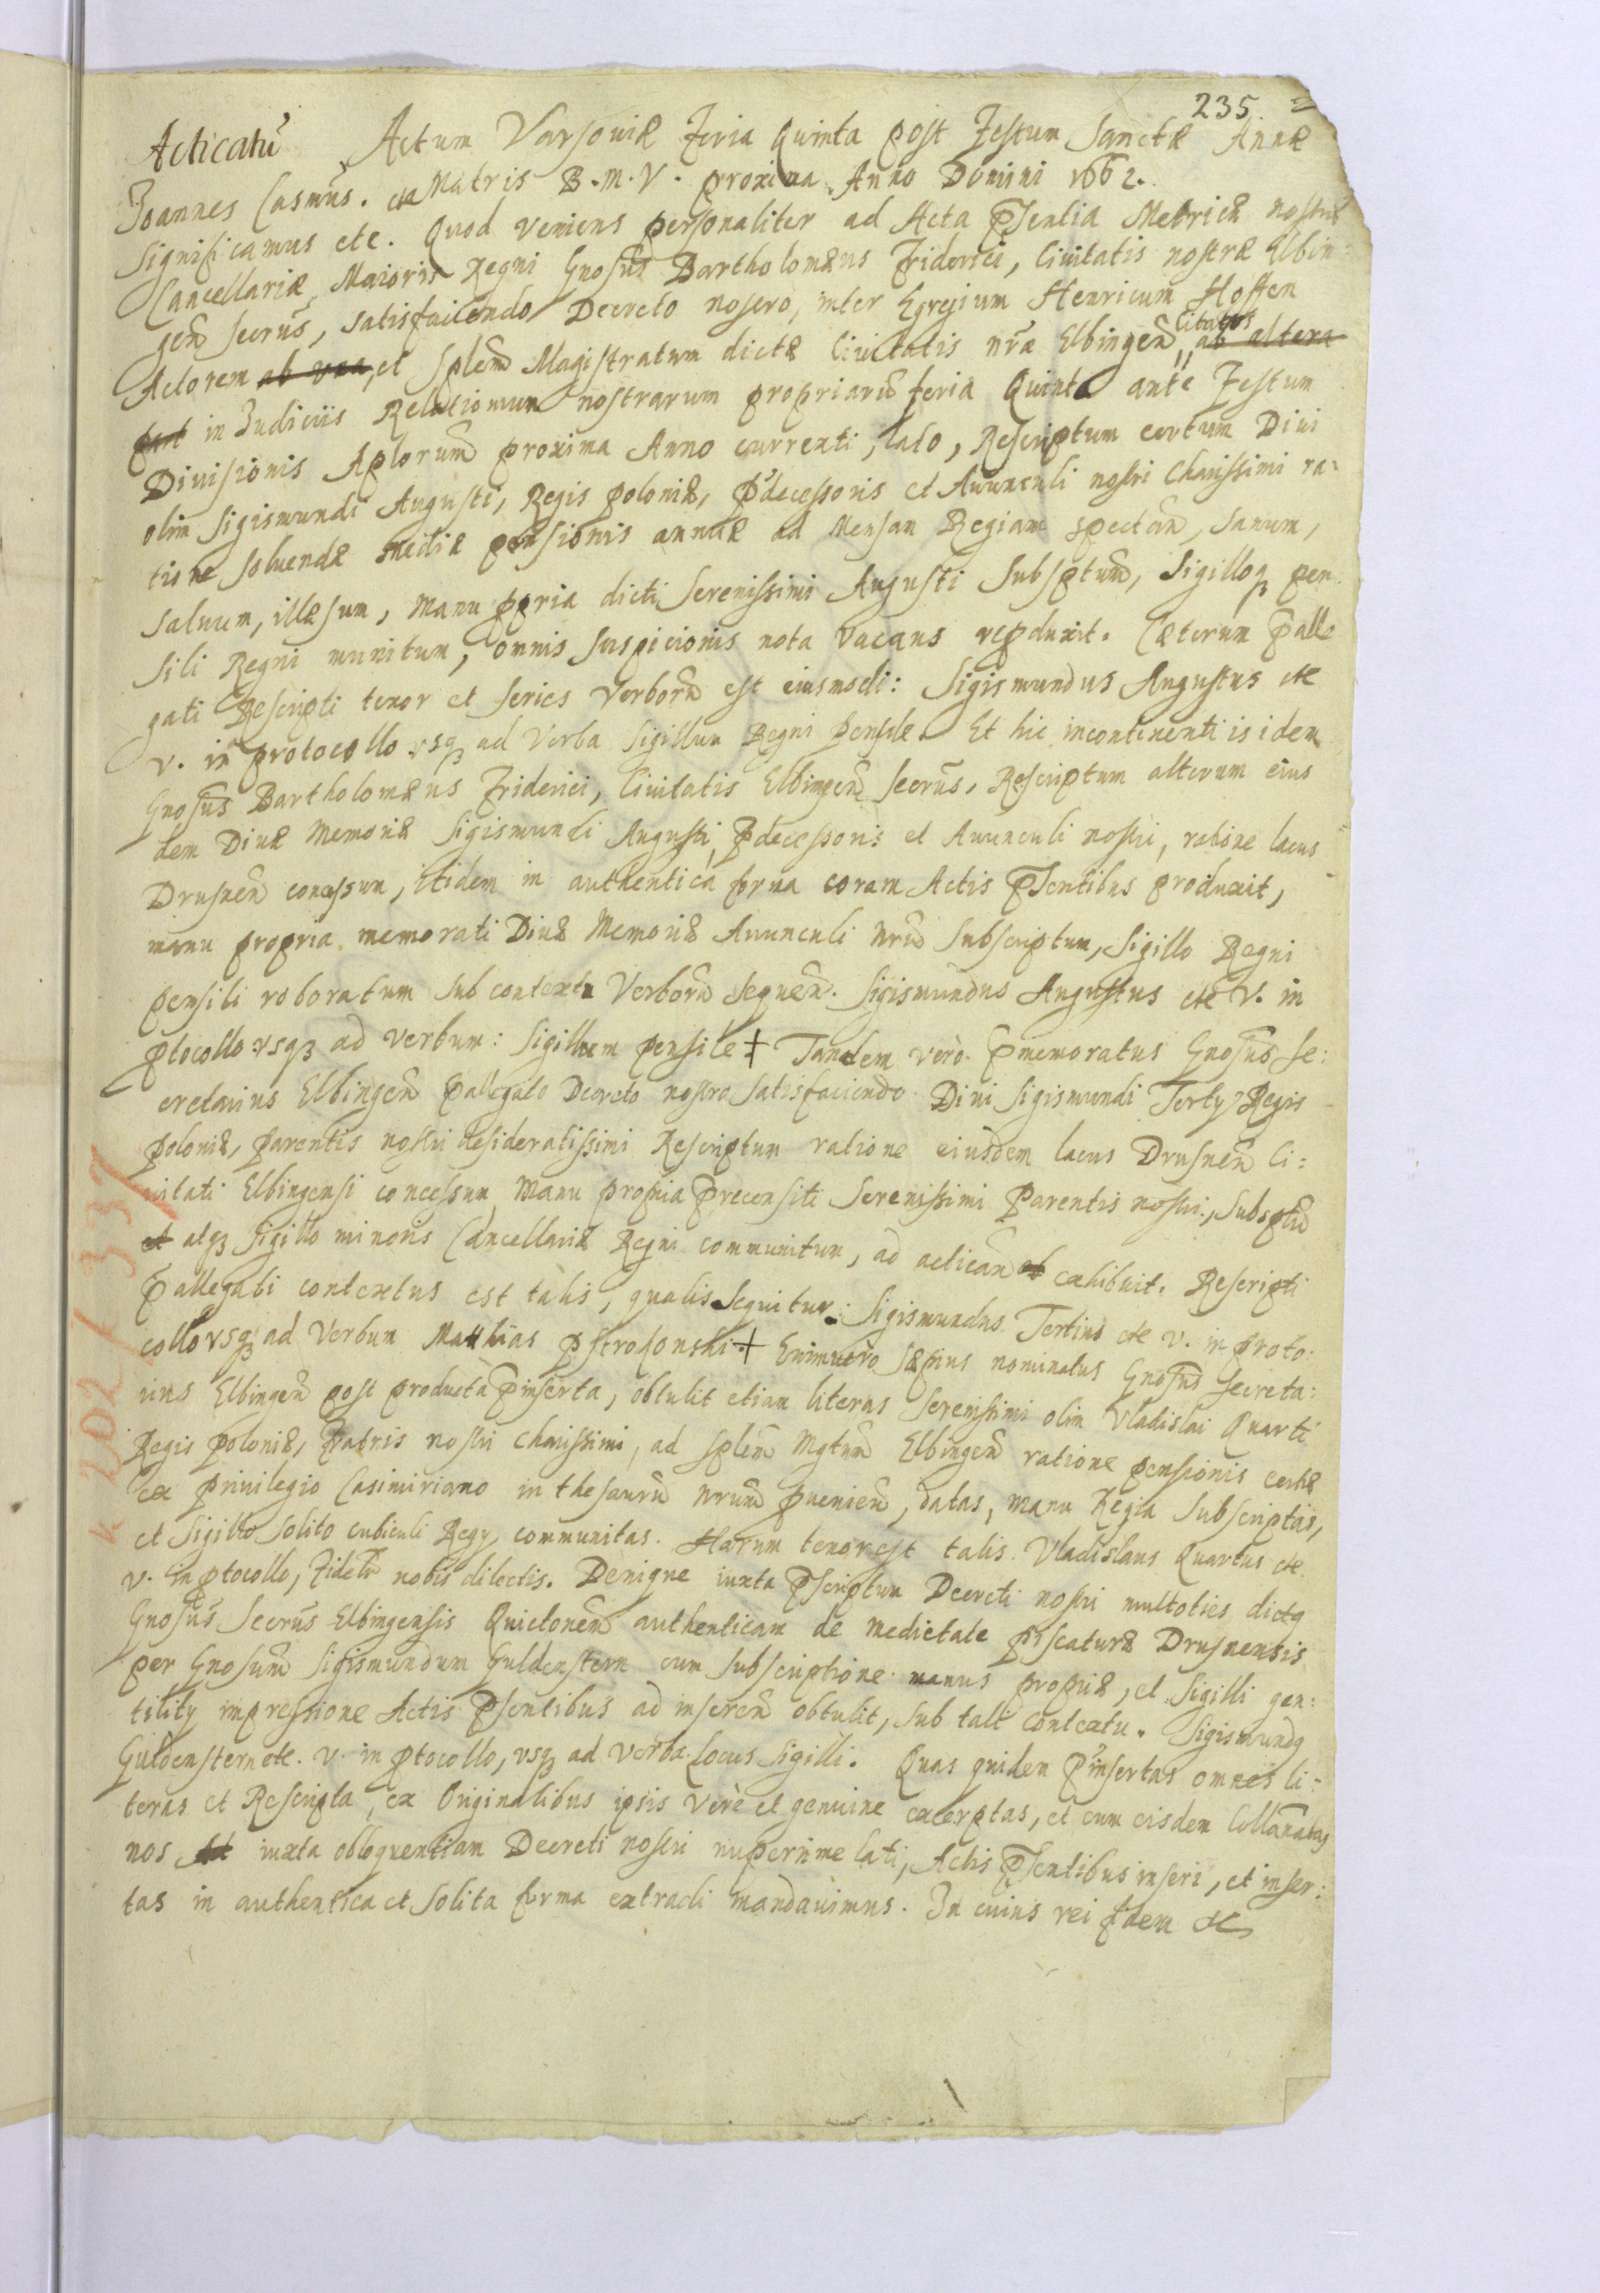 235
Acticatũ Actum Varsoviæ Feria Quinta post Festum Sanctæ Annæ
Matris B. M. V. proxima Anno Domini 1662.
Joannes Casmũs. etc
Significamus etc. Quod veniens personaliter ad Acta pſentia Metricæ nostræ
Cancellariæ Maioris Regni Gnosus Bartholomæus Friderici, Civitatis nostræ Elbin:
gen̄ Secrũs, satisfaciendo Decreto nostro, inter Egregium Henricum Hoffen
Actorem ab una, et Splen̄ Magistratum dictæ Civitatis nr̃a Elbingen̄, Citatos ab altera
part in Judiciis Relationum nostrarum propriarũ feria Quinta ante Festum
Divisionis Aplorum̄ proxima Anno currenti, lato, Rescriptum certum Divi
olim Sigismundi Augusti, Regis Poloniæ, p̄decessoris et Avunculi nostri Charissimi ra:
tione solvendæ mediæ pensionis annuæ ad Mensam Regiam spectan̄, sanum,
salvum, illæsum, manu ppria dicti Serenissimi Augusti Subsptum̄, Sigilloq̃ pen
sili Regni munitum, omnis suspicionis nota vacans repduxit. Cæterum p̄alle
gati Rescripti tenor et series Verborũ est eiusmodi: Sigismundus Augustus etc
v. in protocollo usq̃ ad Verba Sigillum Regni pensile. Et hic incontinenti is idem
Gnosũs Bartholomæus Friderici, Civitatis Elbingen̄ Secrũs, Rescriptum alterum eius
dem Divæ Memoriæ Sigismundi Augusti, p̄decessoris et Avunculi nostri, ratione lacus
Drusnen̄ concessum, itidem in authentica forma coram Actis pſentibus produxit,
manu propria memorati Divæ Memoriæ Avunculi nrĩ Subscriptum, Sigillo Regni
pensili roboratum sub contextu Verborũ sequen̄. Sigismundus Augustus etc V. in
ptocollo usq̃ ad verbum: Sigillum pensile ‡ Tandem verò p̄memoratus Gnosũs Se:
cretarius Elbingen̄ p̄allegato Decreto nostro satisfaciendo Divi Sigismundi Tertij Regis
Poloniæ, parentis nostri desideratissimi Rescriptum ratione eiusdem lacus Drusnen̄ Ci:
vitati Elbingensi concessum, Manu propria p̄recensiti Serenissimi Parentis nostri, Subsptũ
et atq̃ Sigillo minoris Cancellariæ Regni communitum, ad actican̄ et exhibuit. Rescripti
p̄allegati contextus est talis, qualis sequitur: Sigismundus Tertius etc v. in proto:
collo usq̃ ad Verbum Matthias Pstrokonski ‡ Enimvero sæpius nominatus Gnosũs Secreta:
rius Elbingen̄ post producta p̄inserta, obtulit etiam literas Serenissimi olim Vladislai Quarti
Regis Poloniæ, Fratris nostri charissimi, ad Splen̄ Mgtum̄ Elbingen̄ ratione pensionis certæ
ex privilegio Casimiriano in thesaurũ nrum̄ pvenien̄, datas, manu Regia Subscriptas,
et Sigillo solito cubiculi Regij communitas. Harum tenor est talis. Vladislaus Quartus etc
v. in ptocollo, Fideli nobis dilectis. Denique iuxta pſcriptum Decreti nostri multoties dictq
Gnosũs Secrũs Elbingensis Quietonem̄ authenticam de medietate piscaturæ Drusnensis
per Gnosum̄ Sigismundum Guldenstern cum subscriptione manus propriæ, et Sigilli gen:
tilitij impressione Actis pſentibus ad inseren̄ obtulit, sub tali contextu. Sigismundq
Guldenstern etc. v. in ptocollo, usq̃ ad verba Locus Sigilli. Quas quidem p̄insertas omnes li:
teras et Rescripta, ex Originalibus ipsis verè et genuine excerptas, et cum eisdem Collānatas
nos iuxta obloquentiam Decreti nostri nuperrime lati, Actis pſentibus inseri, et inser:
tas in authentica et solita forma extradi mandavimus. In cuius rei fidem etc